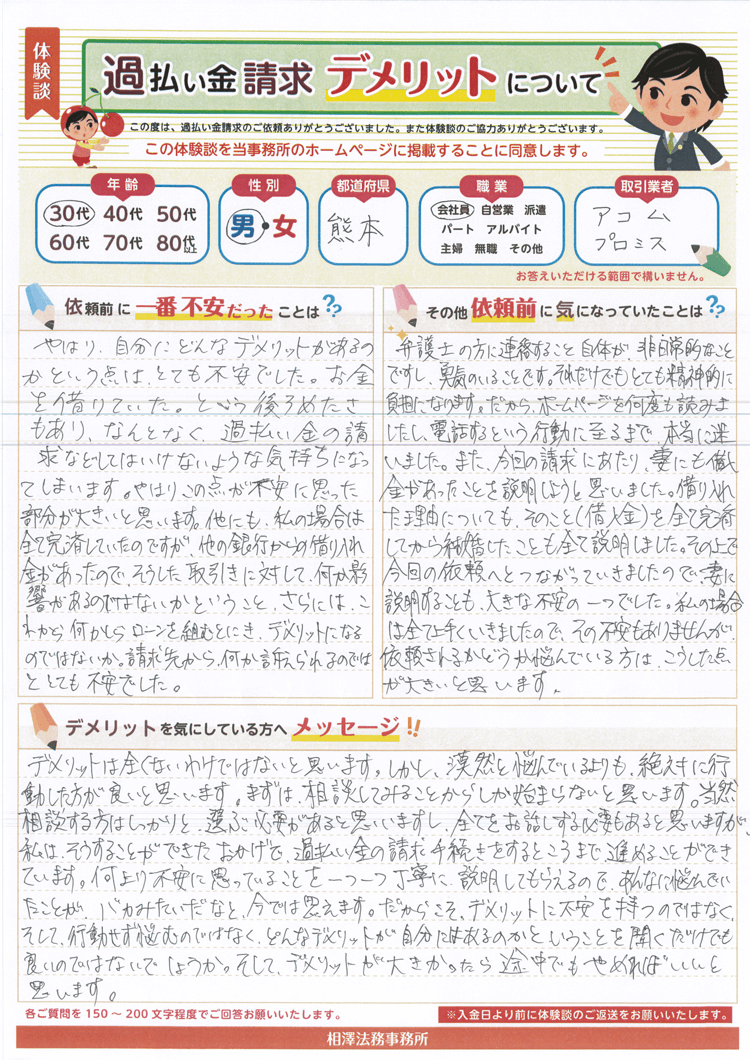 体験談
過払い金請求 デメリットについて
この度は、過払い金請求のご依頼ありがとうございました。また体験談のご協力ありがとうございます。
この体験談を当事務所のホームページに掲載することに同意します。
年齢
30代 40代 50代
60代 70代 80代以上
性別
男・女
都道府県
熊本
職業
会社員 自営業 派遣
パート アルバイト
主婦 無職 その他
取引業者
アコム
プロミス
お答えいただける範囲で構いません。
依頼前に一番不安だったことは??
やはり、自分にどんなデメリットがあるの
かという点は、とても不安でした。お金
を借りていた。という後ろめたさ
もあり、なんとなく、過払い金の請
求などしてはいけないような気持ちになっ
てしまいます。やはりこの点が不安に思った
部分が大きいと思います。他にも、私の場合は
全て完済していたのですが、他の銀行からの借り入れ
金があったので、そうした取引きに対して、何か影
響があるのではないかということ、さらには、こ
れから何かしらローンを組むとにき、デメリットになる
のではないか。請求先から、何か訴えられるのでは
ととても不安でした。
その他依頼前に気になっていたことは??
弁護士の方に連絡すること自体が、非日常的なこと
ですし、勇気のいることです。それだけでもとても精神的に
負担になります。だから、ホームページを何度も読みま
したし、電話するという行動に至るまで、本当に迷
いました。また、今回の請求にあたり、妻にも借入
金があったことを説明しようと思いました。借り入れ
た理由についても、そのこと(借入金)を全て完済
してから結婚したことも全て説明しました。その上で
今回の依頼へとつながっていきましたので、妻に
説明することも、大きな不安の一つでした。私の場合
は全て上手くいきましたので、その不安もありませんが、
依頼されるかどうか悩んでいる方は、こうした点
が大きいと思います。
デメリットを気にしている方へメッセージ!!
デメリットは全くないわけではないと思います。しかし、漠然と悩んでいるよりも、絶対に行
動した方が良いと思います。まずは、相談してみることからしか始まらないと思います。当然
相談する方はしっかりと、選ぶ必要があると思いいますし、全てをお話しする必要もあると思いますが、
私は、そうすることができたおかげで、過払い金の請求手続きをするところまで、進めることができ
ています。何より不安に思っていることを一つ一つ丁寧に、説明してもらえるので、あんなに悩んでい
たことが、バカみたいだなと、今では思えます。だからこそ、デメリットに不安を持つのではなく、
そして、行動せず悩むのではなく、どんなデメリットが自分にはあるのかということを聞くだけでも
良いのではないでしょうか。そして、デメリットが大きかったら途中でもやめればいいと
思います。
各ご質問を150～200文字程度でご回答お願いいたします。
※入金日より前に体験談のご返送をお願いいたします。
相澤法務事務所